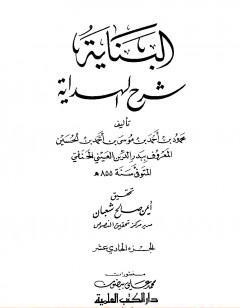 البناية
شرح الهداية
تأليف
محمود بن أحمد بن موسى بن أحمد بن الحسين
المعروف ببدر الدين العيني الحنفي
المتوفى سنة ٨٥٥ هـ
تحقيق
أيمن صالح شعبان
الجزء الحادي عشر
منشورات
محمد علي بيضون
دار الكتب العلمية